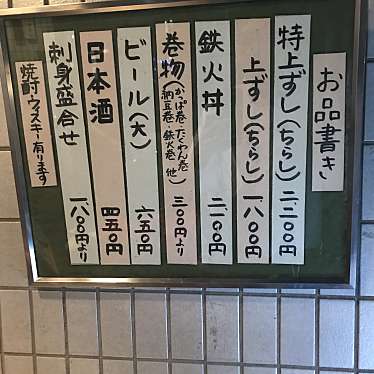 お品書き
特上ずし(ちらし) 二、二〇〇円
上ずし(ちらし) 一、八〇〇円
鉄火丼 二、一〇〇円
巻物(かっぱ巻・たくわん巻
納豆巻 鉄火巻 他) 三〇〇円より
ビール(大) 六五〇円
日本酒 四五〇円
刺身盛合せ 一、八〇〇円より
焼酎ウィスキー有ります